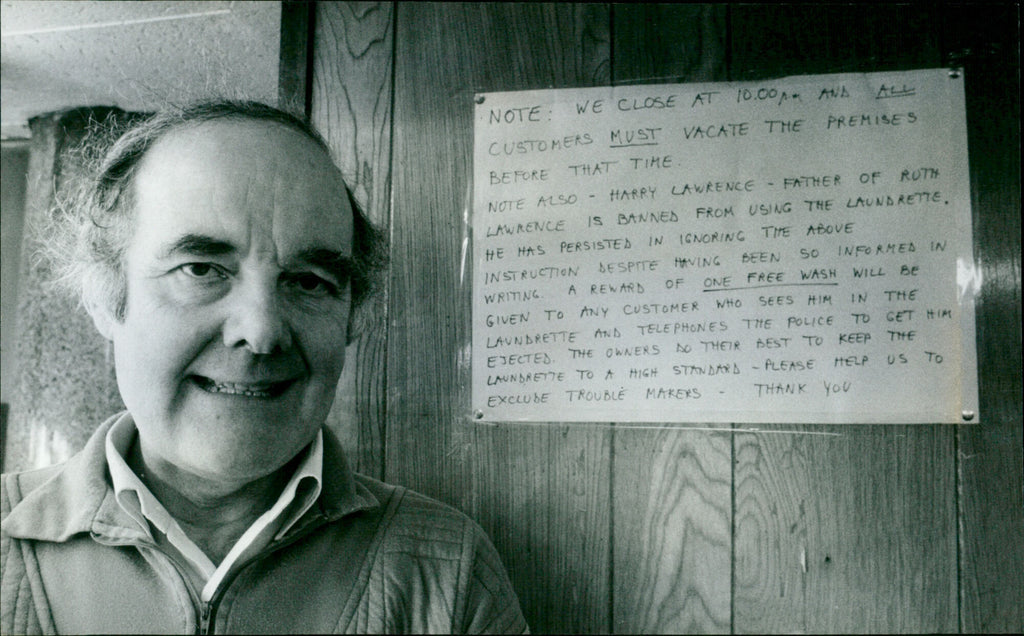 NOTE: WE CLOSE AT 10.00pm AND ALL
CUSTOMERS MUST VACATE THE PREMISES
BEFORE THAT TIME.
NOTE ALSO - HARRY LAWRENCE - FATHER OF RUTH
LAWRENCE IS BANNED FROM USING THE LAUNDRETTE.
HE HAS PERSISTED IN IGNORING THE ABOVE
INSTRUCTION DESPITE HAVING BEEN SO INFORMED IN
WRITING. A REWARD OF ONE FREE WASH WILL BE
GIVEN TO ANY CUSTOMER WHO SEES HIM IN THE
LAUNDRETTE AND TELEPHONES THE POLICE TO GET HIM
EJECTED. THE OWNERS DO THEIR BEST TO KEEP THE
LAUNDRETTE TO A HIGH STANDARD - PLEASE HELP US TO
EXCLUDE TROUBLE MAKERS - THANK YOU